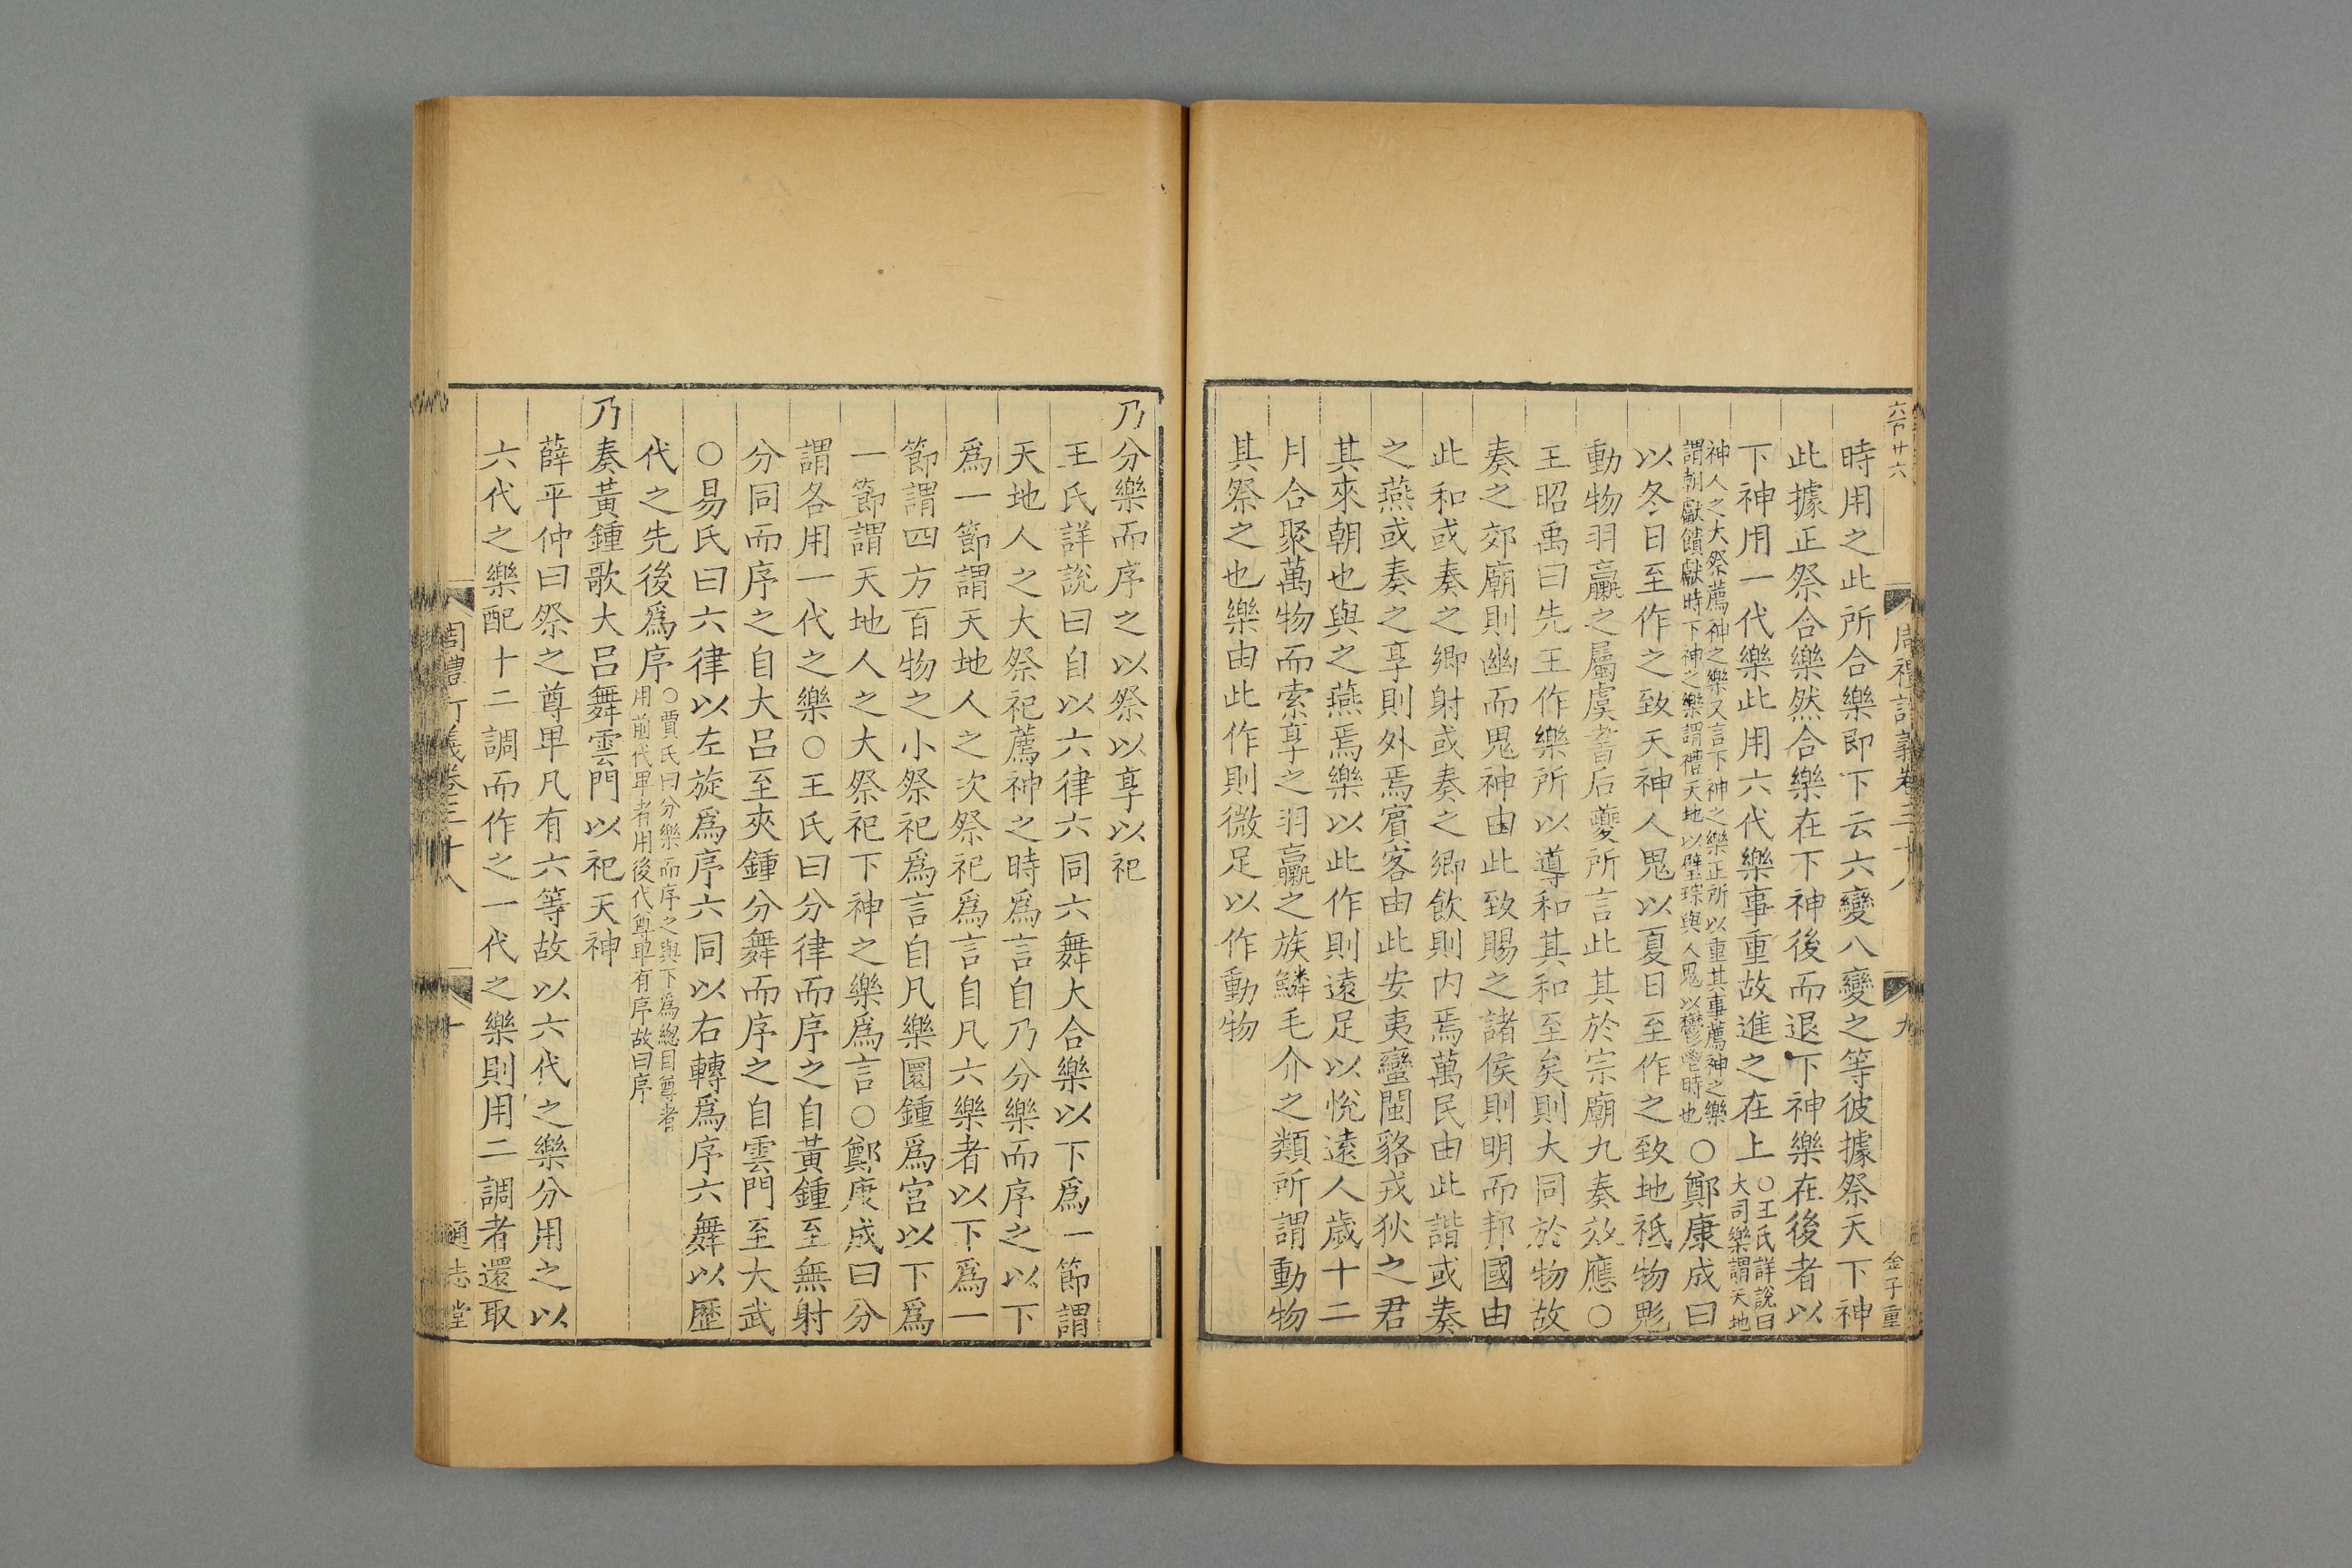 時用之此所合樂即下云六變八變之等彼據祭天下神
此據正祭合樂然合樂在下神後而退下神樂在後者以
下神用一代樂此用六代樂事重故進之在上○王氏詳說曰大司樂謂天地
神人之大祭薦神之樂又言下神之樂正所以重其事薦神之樂謂朝獻饋獻時下神之樂謂禮天地以璧琮與人鬼以鬱鬯時也○鄭康成曰
以冬日至作之致天神人鬼以夏日至作之致地祇物鬽
動物羽臝之屬虞書后夔所言此其於宗廟九奏效應○
王昭禹曰先王作樂所以導和其和至矣則大同於物故
奏之郊廟則幽而鬼神由此致賜之諸侯則明而邦國由
此和或奏之鄉射或奏之鄉飲則内焉萬民由此諧或奏
之燕或奏之享則外焉賓客由此安夷蠻閩貉戎狄之君
其來朝也與之燕焉樂以此作則遠足以悅遠人歲十二
月合聚萬物而索享之羽臝之族鱗毛介之類所謂動物
其祭之也樂由此作則微足以作動物
九
金子重
乃分樂而序之以祭以享以祀
王氏詳說曰自以六律六同六舞大合樂以下爲一節謂
天地人之大祭祀薦神之時爲言自乃分樂而序之以下
爲一節謂天地人之次祭祀爲言自凡六樂者以下爲一
節謂四方百物之小祭祀爲言自凡樂圜鍾爲宮以下爲
一節謂天地人之大祭祀下神之樂爲言○鄭康成曰分
謂各用一代之樂○王氏曰分律而序之自黃鍾至無射
分同而序之自大呂至夾鍾分舞而序之自雲門至大武
○易氏曰六律以左旋爲序六同以右轉爲序六舞以歷
代之先後爲序○賈氏曰分樂而序之與下爲總目尊者用前代卑者用後代尊卑有序故曰序
乃奏黃鍾歌大呂舞雲門以祀天神
薛平仲曰祭之尊卑凡有六等故以六代之樂分用之以
六代之樂配十二調而作之一代之樂則用二調者還取
周禮訂義卷三十八
十
通志堂